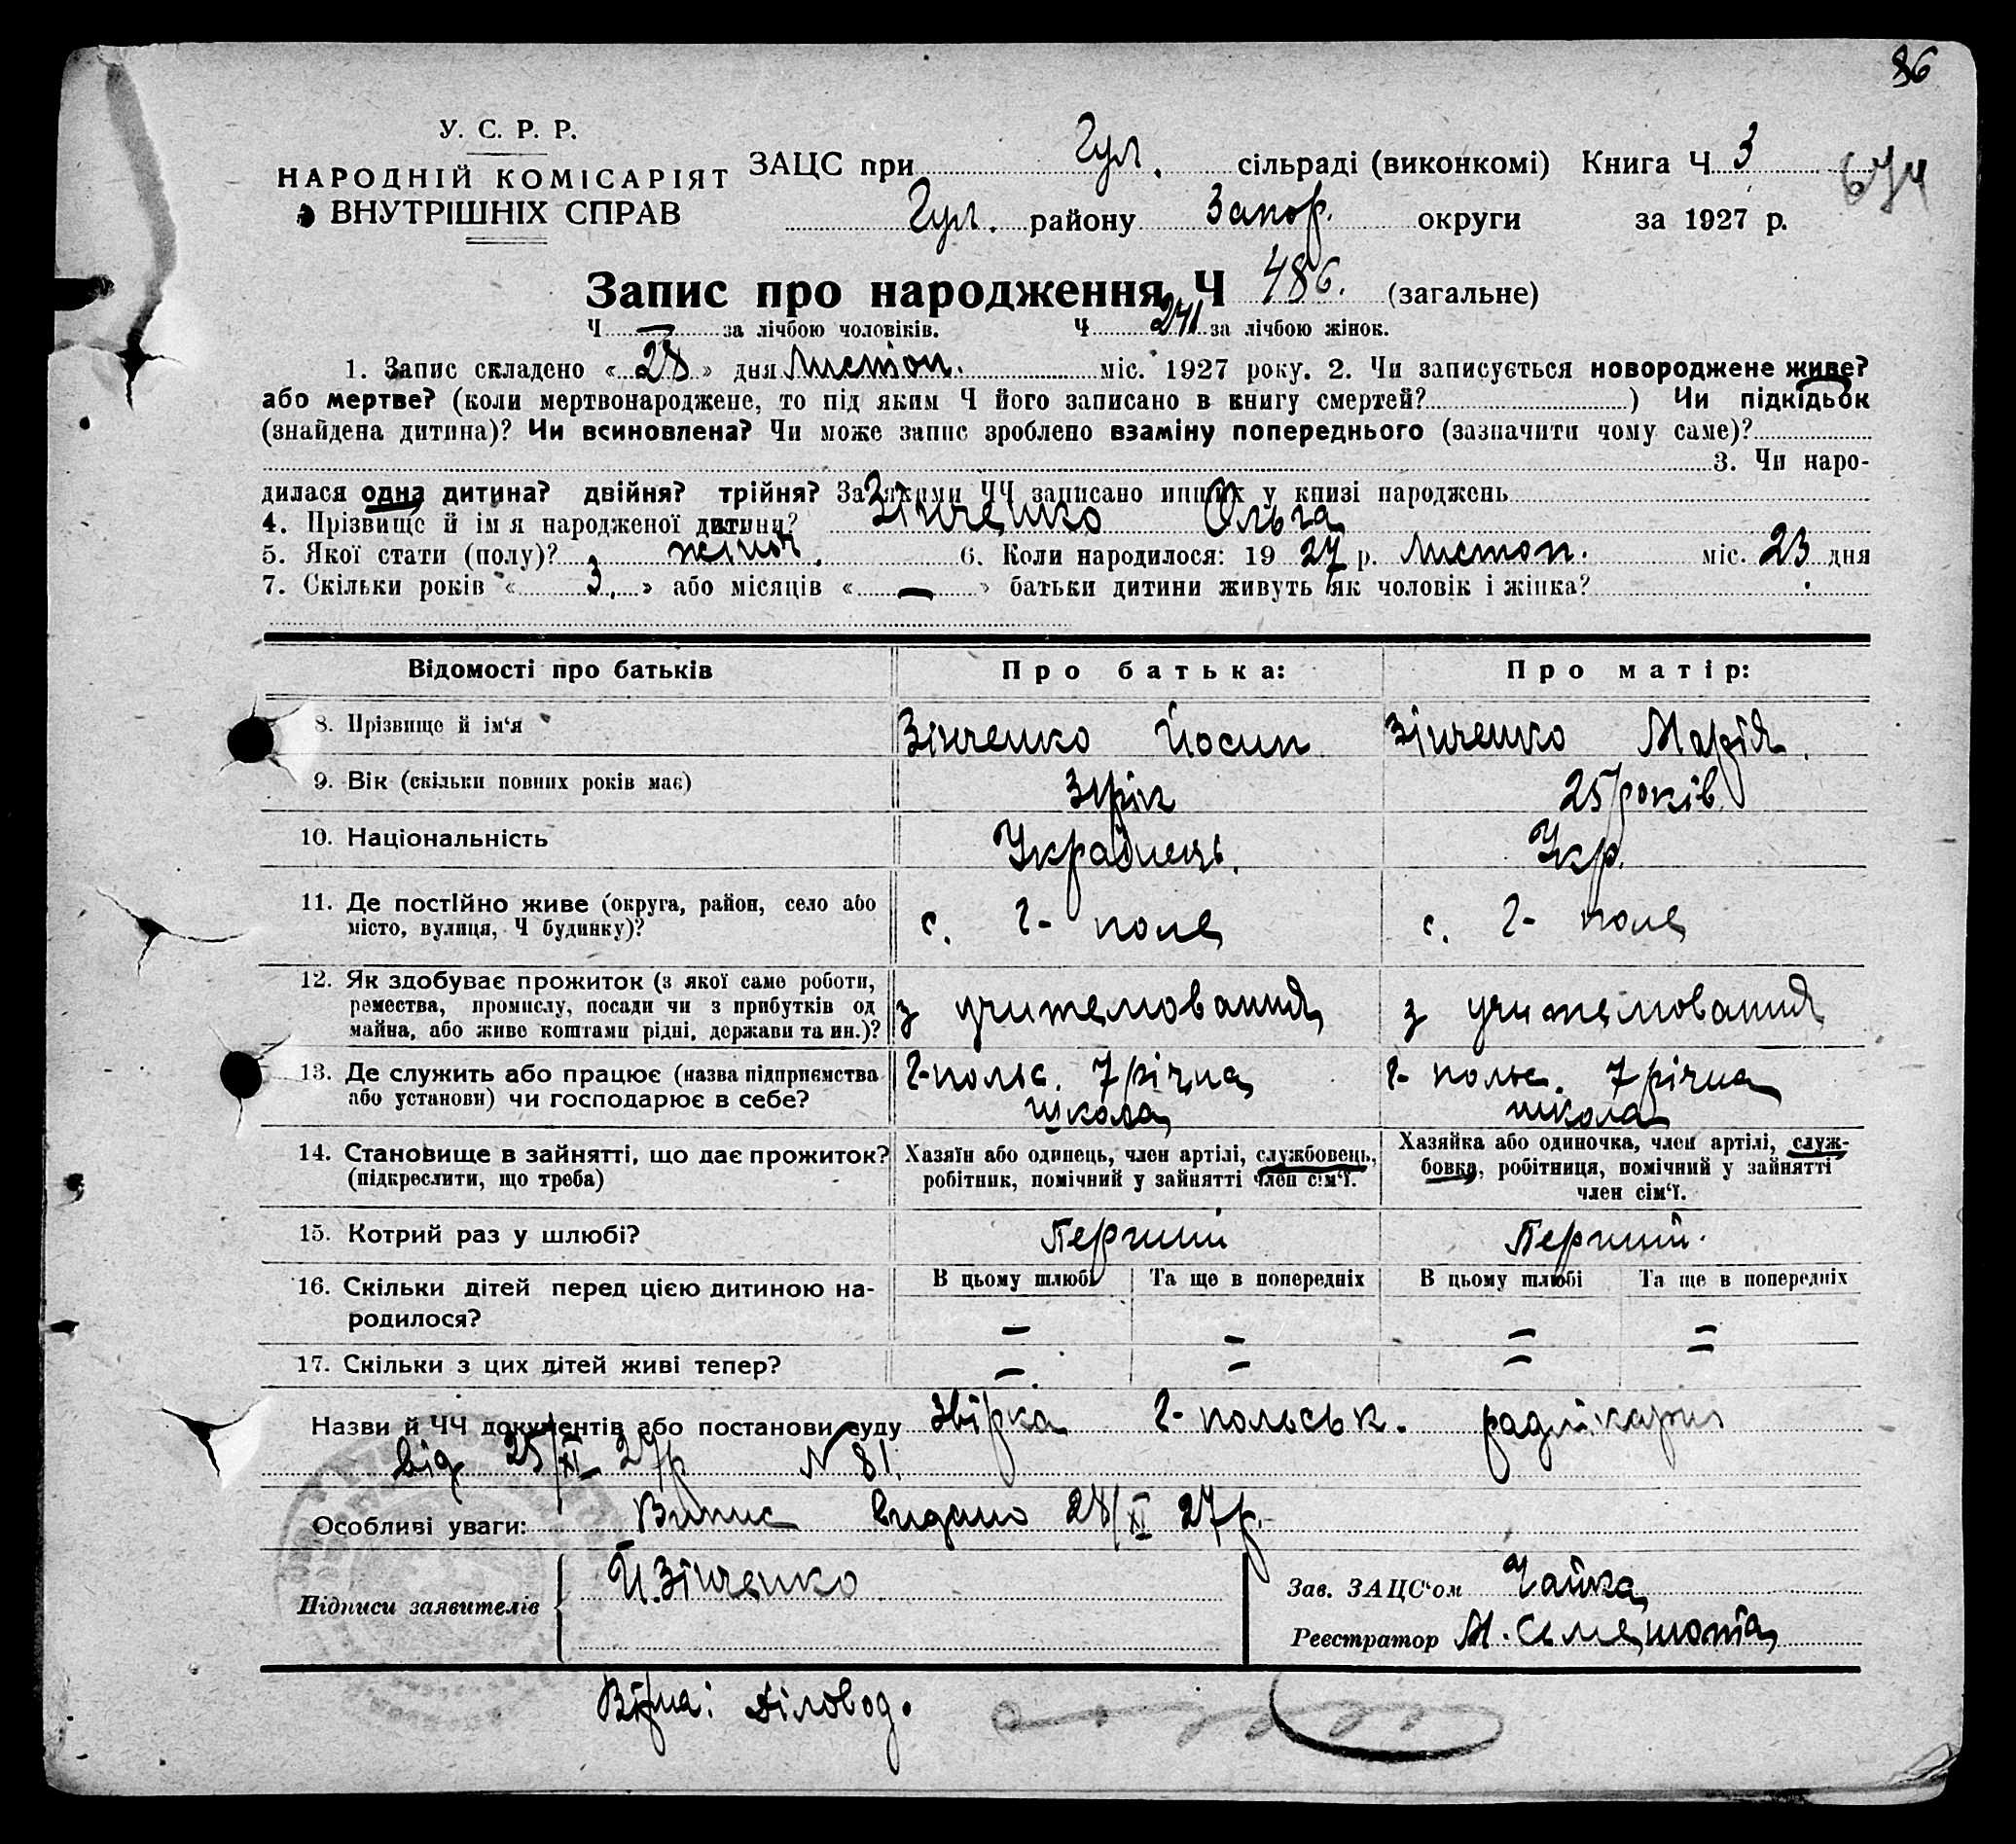 86
У. С. Р. Р.
НАРОДНІЙ КОМІСАРІЯТ
ВНУТРІШНІХ СПРАВ
ЗАЦС при Гул. сільраді (виконкомі) Книга Ч 3
674
Гул. району Запор. округи за 1927 р.
Запис про народження Ч 486. (загальне)
Ч — за лічбою чоловіків. Ч 241 за лічбою жінок.
1. Запис складено «28» дня Листоп. міс. 1927 року. 2. Чи записується новороджене живе?
або мертве? (коли мертвонароджене, то під яким Ч його записано в книгу смертей? ) Чи підкідьок
(знайдена дитина)? Чи всиновлена? Чи може запис зроблено взаміну попереднього (зазначити чому саме)?
3. Чи наро-
дилася одна дитина? двійня? трійня? За якими ЧЧ записано инших у книзі народжень
4. Прізвище й ім я народженої дитини? Зінченко Ольга
5. Якої стати (полу)? жіноч. 6. Коли народилося: 19 27 р. Листоп. міс. 23 дня
7. Скільки років «3» або місяців «—» батьки дитини живуть як чоловік і жінка?
Відомості про батьків Про батька: Про матір:
8. Прізвище й ім‘я Зінченко Йосип Зінченко Марія.
9. Вік (скільки повних років має) 31 рік 25 років
10. Національність Українець. Укр.
11. Де постійно живе (округа, район, село або
місто, вулиця, Ч будинку)? с. Г- поле с. Г- поле
12. Як здобуває прожиток (з якої саме роботи,
ремества, промислу, посади чи з прибутків од
майна, або живе коштами рідні, держави та ин.)? з учителювання з учителювання
13. Де служить або працює (назва підприємства
або установи) чи господарює в себе? Г-польс. 7 річна школа Г- польс. 7 річна школа
14. Становище в зайнятті, що дає прожиток?
(підкреслити, що треба)
Хазяїн або одинець, член артілі, службовець,
робітник, помічний у зайнятті член сім‘ї.
Хазяйка або одиночка, член артілі, служ-
бовка, робітниця, помічний у зайнятті
член сім‘ї.
15. Котрий раз у шлюбі? Перший Перший.
16. Скільки дітей перед цією дитиною на-
родилося?
В цьому шлюбі Та ще в попередніх В цьому шлюбі Та ще в попередніх
— — — —
17. Скільки з цих дітей живі тепер? — — — —
Назви й ЧЧ документів або постанови суду Звірка Г- польськ.
від 25/XI 27р N 81.
Особливі уваги: Випис видано 28/XI 27р.
Підписи заявителів Й.Зінченко
Зав. ЗАЦС‘ом Чайка
Реєстратор М.
Вірна: Діловод.